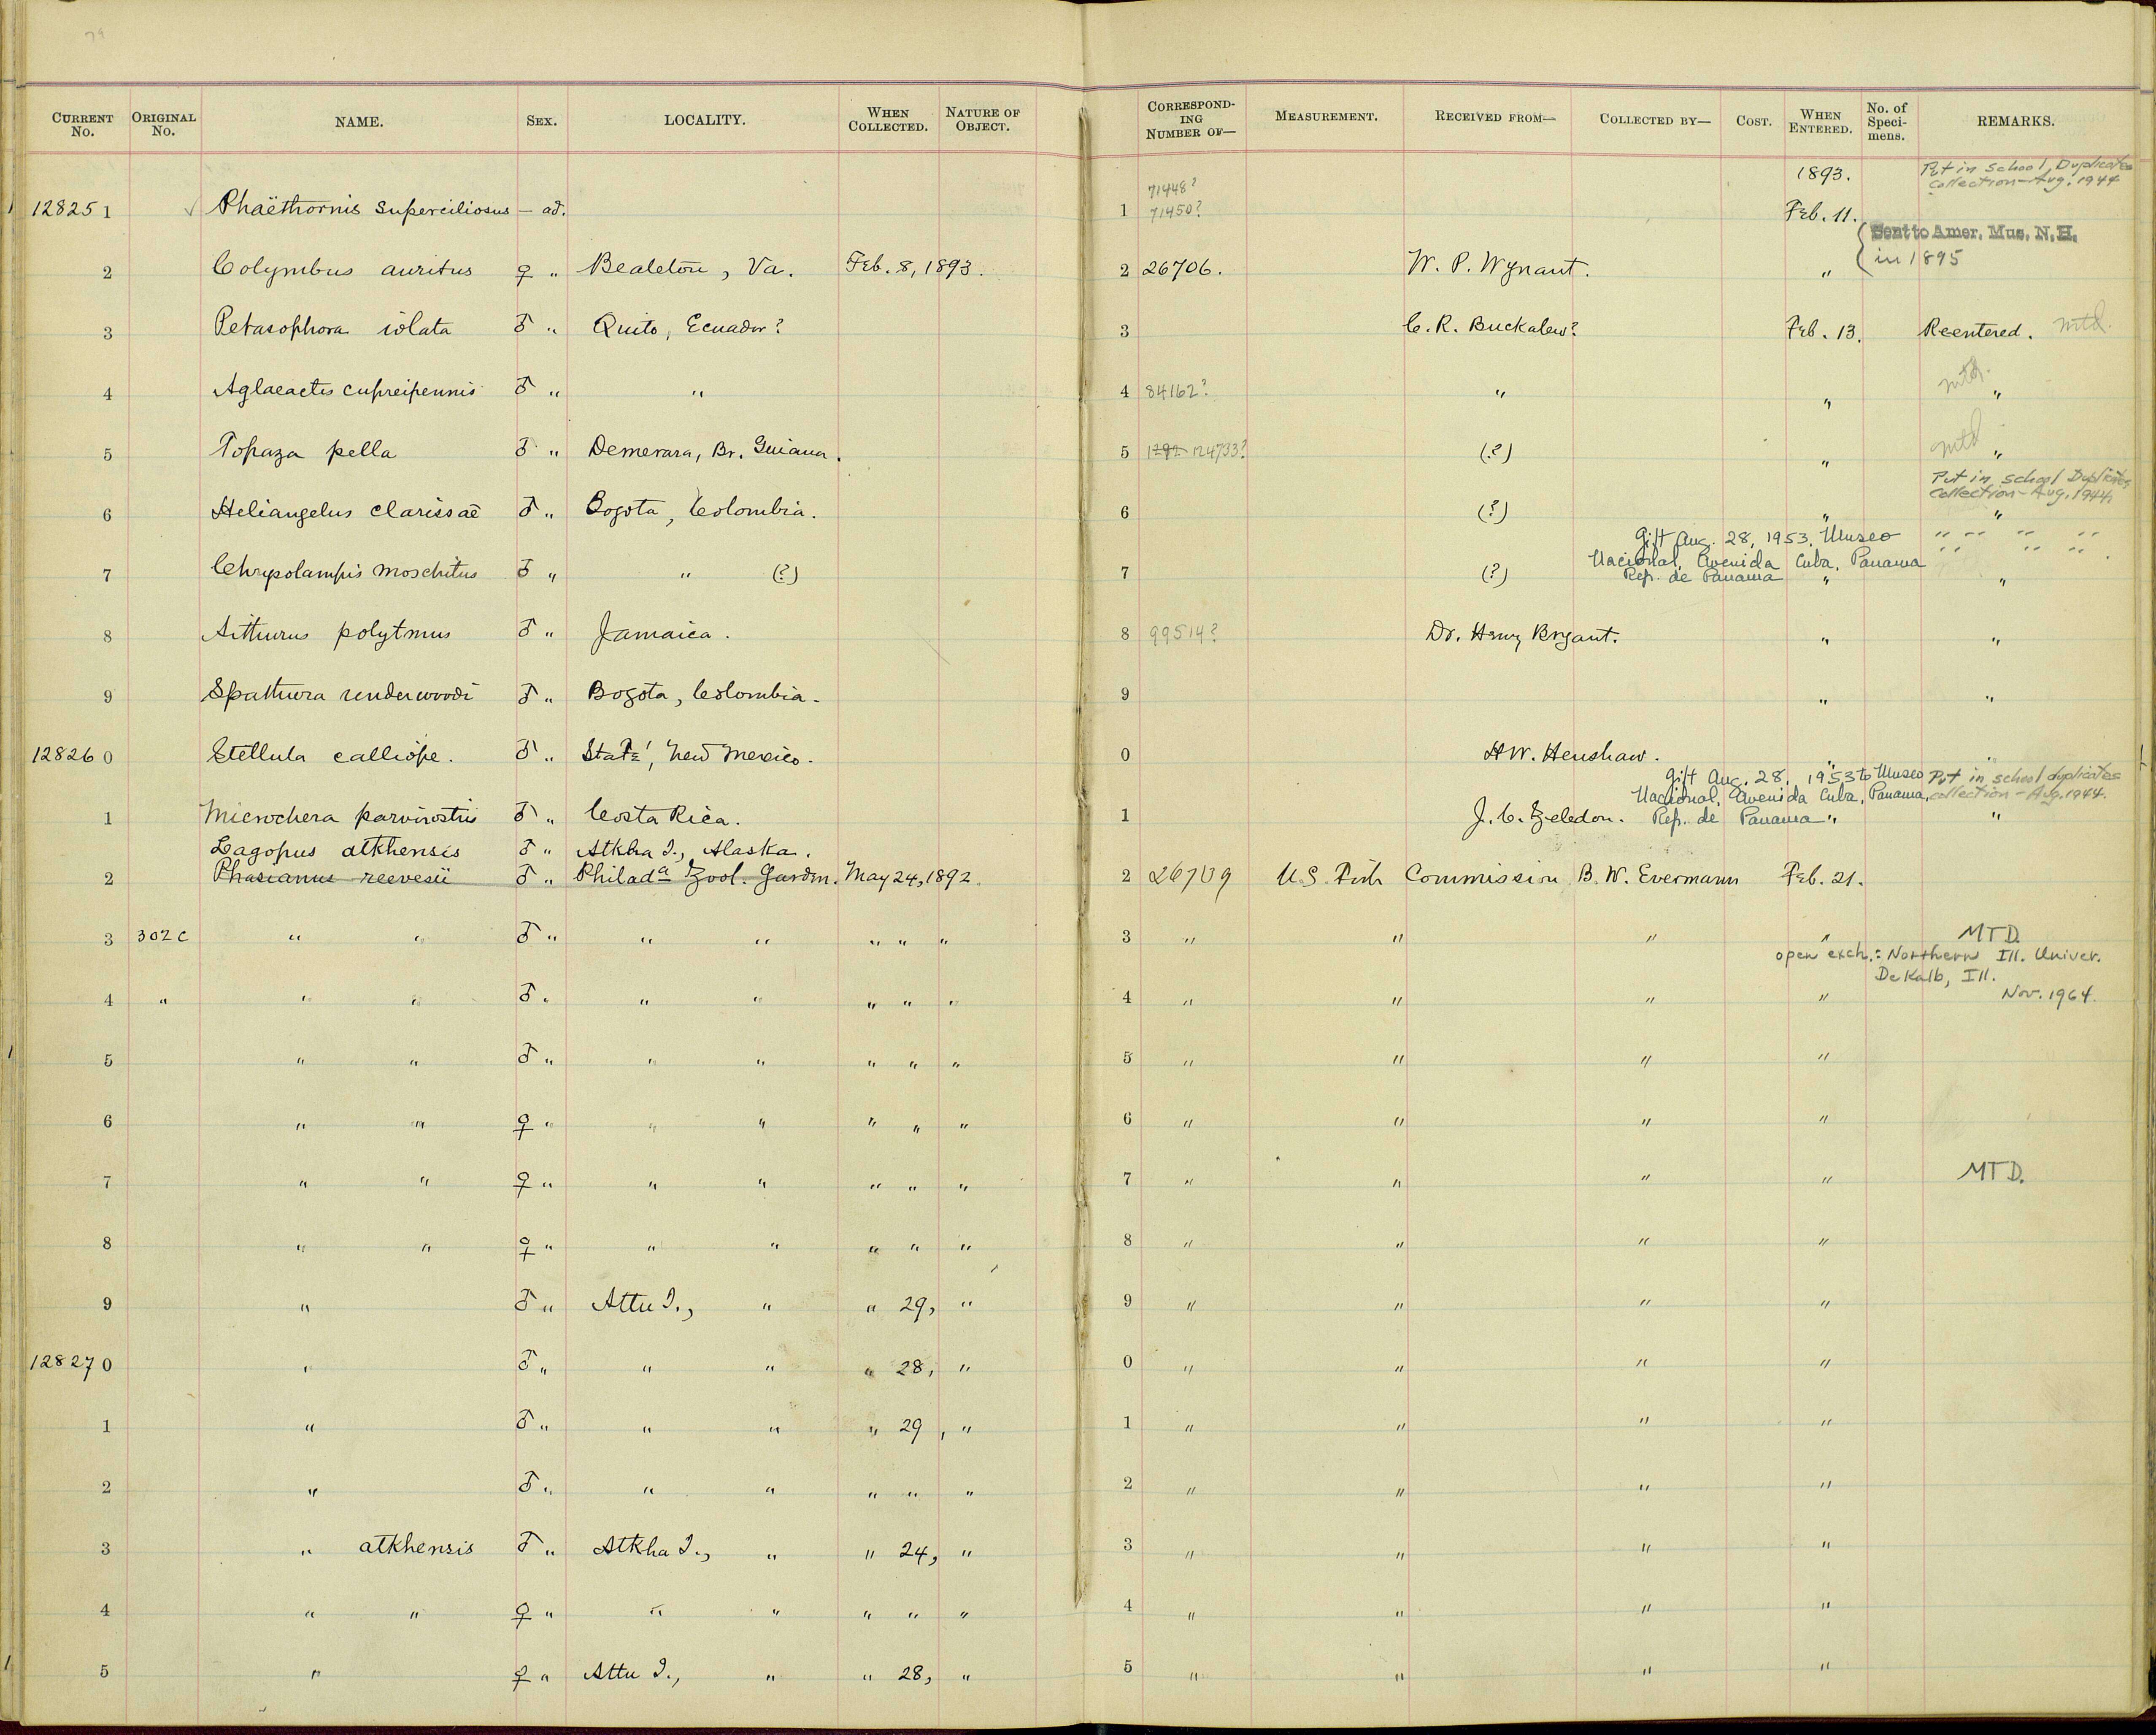 79
CURRENT No. ORIGINAL No. NAME. SEX. LOCALITY. WHEN COLLECTED. NATURE OF OBJECT. CORRESPONDING NUMBER OF— MEASUREMENT. RECEIVED FROM— COLLECTED BY— COST. WHEN ENTERED. No. of Specimens. REMARKS.
1893. Put in School Duplicates
collection - Aug. 1944
71448?
128251 ✓ Phaëthornis superciliosus — ad. 1 71450? Feb. 11.
Sent to Amer. Mus. N. H.
in 1895
2 Colymbus auritus ♀ " Bealeton, Va. Feb. 8, 1893. 2 26706. W. P. Wynant. "
3 Petasophora iolata ♂ " Quito, Ecuador? 3 C. R. Buckalew? Feb. 13. Reentered. mtd.
4 Aglaeactis cupreipennis ♂ " " 4 84162? " " mtd. "
5 Topaza pella ♂ " Demerara, Br. Guiana. 5 124733? (?) " mtd "
Put in School Duplicates
Collection - Aug. 1944
6 Heliangelus clarissaë ♂ " Bogota, Colombia. 6 (?) " "
Gift Aug. 28, 1953, Museo " " " "
Nacional, Avenida Cuba, Panama " " "
7 Chrysolampis moschitus ♂ " " (?) 7 (?) Rep. de Panama " "
8 Aithurus polytmus ♂ " Jamaica. 8 99514? Dr. Henry Bryant. " "
9 Spathura underwoodi ♂ " Bogota, Colombia. 9 " "
128260 Stellula calliope. ♂ " New Mexico. 0 H W. Henshaw. " "
Gift Aug. 28, 1953 to Museo Put in school duplicates
Nacional, Avenida Cuba, Panama, collection - Aug. 1944.
1 Microchera parvirostris ♂ " Costa Rica. 1 J. C. Zeledon. Rep. de Panama " "
Lagopus atkhensis ♂ " Atkha I., Alaska.
2 Phasianus reevesii ♂ " Philada Zool. Garden. May 24, 1892. 2 26709 U.S. Fish Commission B. W. Evermann Feb. 21.
3 302c " " ♂ " " " " " " 3 " " " " MTD.
open exch.: Northern Ill. Univer.
DeKalb, Ill.
4 " " " ♂ " " " " " " 4 " " " " Nov. 1964.
5 " " ♂ " " " " " " 5 " " " "
6 " " ♀ " " " " " " 6 " " " "
7 " " ♀ " " " " " " 7 " " " " MTD.
8 " " ♀ " " " " " " 8 " " " "
9 " ♂ " Attu I., " " 29, " 9 " " " "
128270 " ♂ " " " " 28, " 0 " " " "
1 " ♂ " " " " 29, " 1 " " " "
2 " ♂ " " " " " " 2 " " " "
3 " atkhensis ♂ " Atkha I., " " 24, " 3 " " " "
4 " " ♀ " " " " " " 4 " " " "
5 " ♀ " Attu I., " " 28, " 5 " " " "